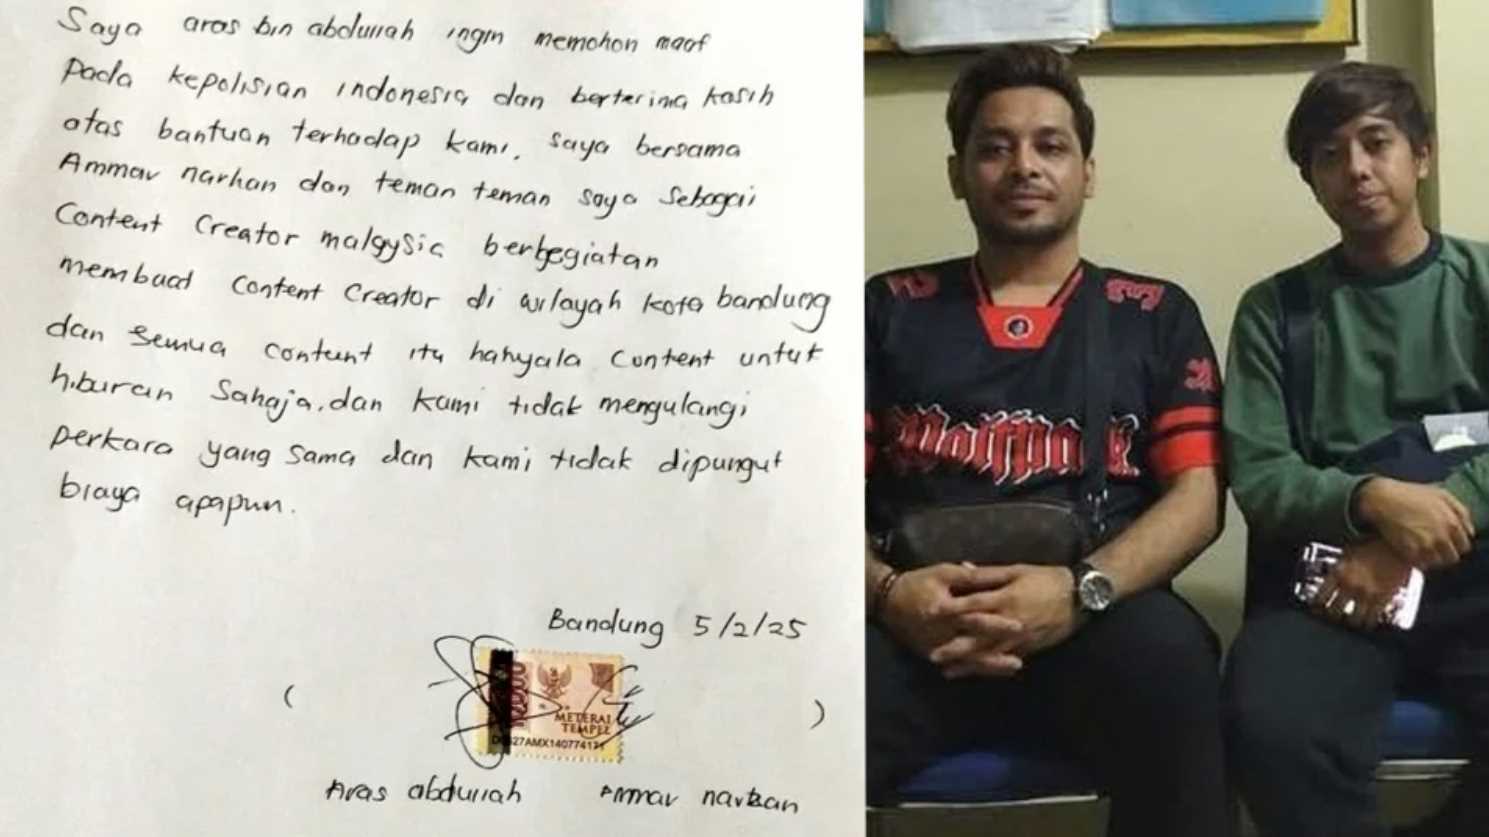 Saya aras bin abdullah ingin memohon maaf
Pada kepolisian indonesia dan berterima kasih
atas bantuan terhadap kami. saya bersama
Ammar narhan dan teman teman saya sebagai
Content Creator malaysia berbegiatan
membuat content creator di wilayah kota bandung
dan semua content itu hahyala content untuk
hiburan sahaja. dan kami tidak mengulangi
perkara yang sama dan kami tidak dipungut
biaya apapun.
Bandung 5/2/25
( )
METERAI
TEMPEL
Aras abdullah Ammar narhan
Wolfpack